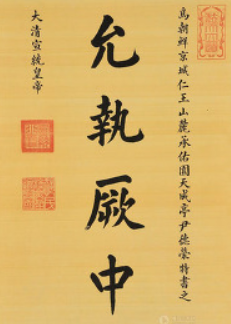 為朝鮮京城仁王山麓承佑園天成亭尹德榮特書之
允執厥中
大清宣統皇帝